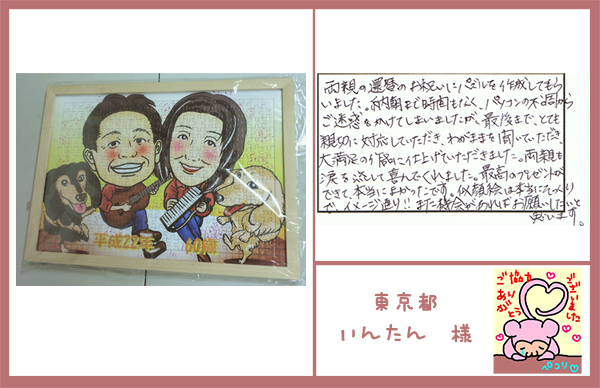 平成22年 60歳
両親の還暦のお祝いにパズルを作成してもら
いました。納期まで時間もなく、パソコンの不調から
ご迷惑をかけてしまいましたが、最後まで、とても
親切に対応していただき、わがままを聞いていただき、
大満足の作品に仕上げていただきました。両親も
涙を流して喜んでくれました。最高のプレゼントが
できて本当によかったです。似顔絵は本当にそっくり
で、イメージ通り!!また機会があればお願いしたいと
思います。
東京都
いんたん 様
ご協力
ありがとう
ございました
ペコリ